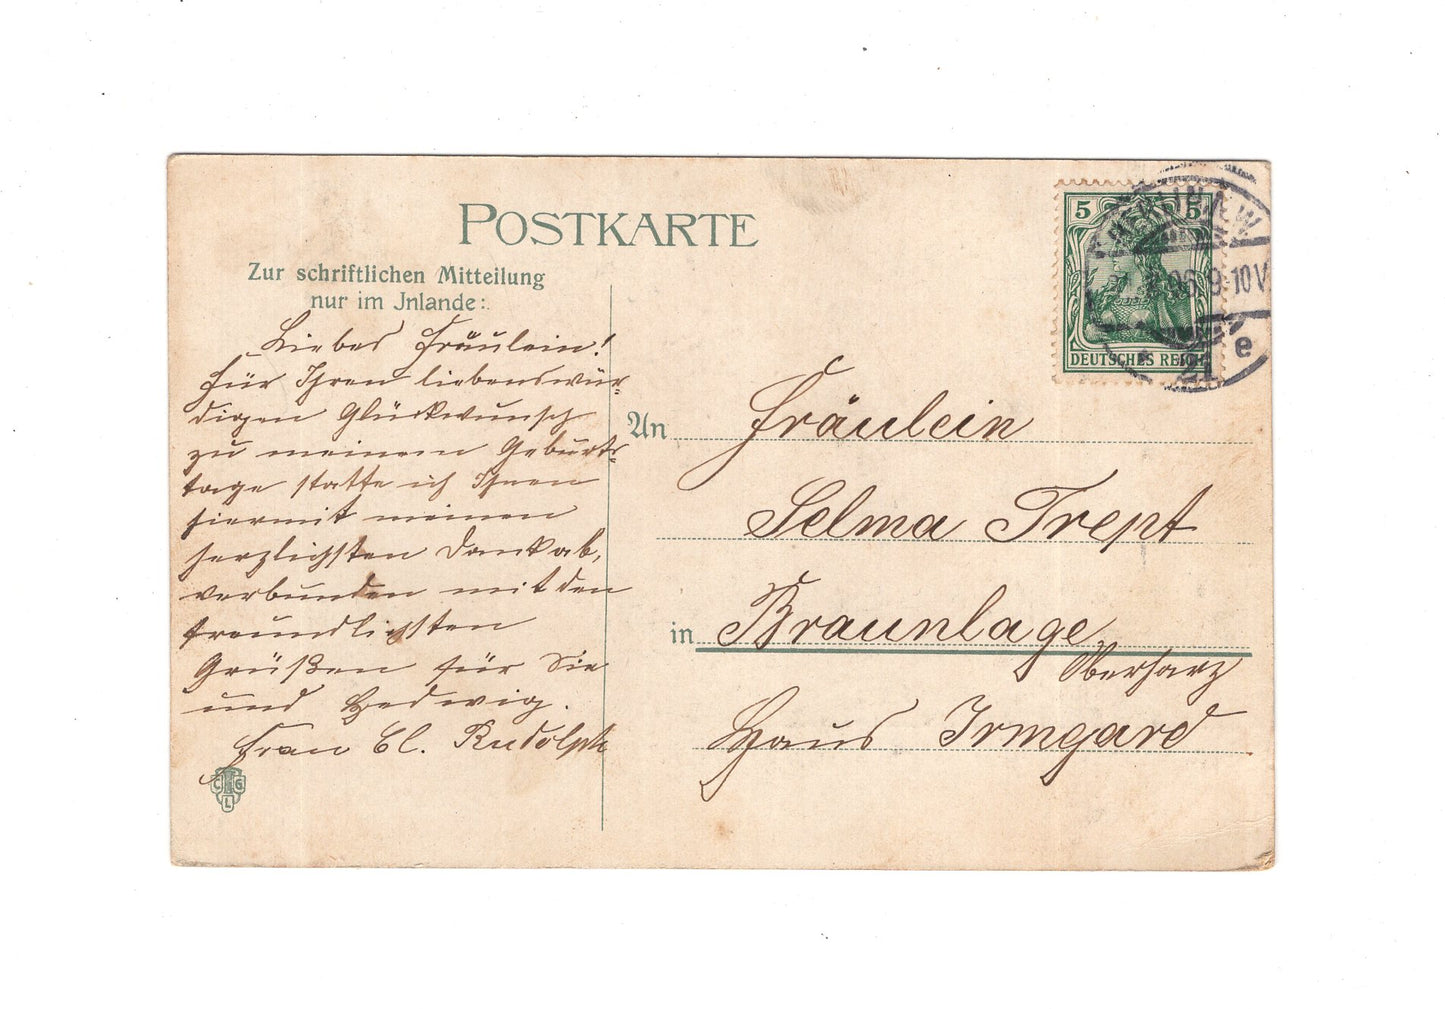 POSTKARTE
Zur schriftlichen Mitteilung
nur im Jnlande:
Liebes Fräulein!
Für Ihren liebenswür-
digen Glückwunsch
zu meinem Geburts-
tage statte ich Ihnen
hiermit meinen
herzlichsten Dank ab,
verbunden mit den
freundlichsten
Grüßen für Sie
und Hedwig.
Frau Cl. Rudolph
C G L
5 5
DEUTSCHES REICH
BERLIN N.W.
06 9-10V
21 e
An Fräulein
Selma Trept
in Braunlage
Oberharz
Haus Irmgard